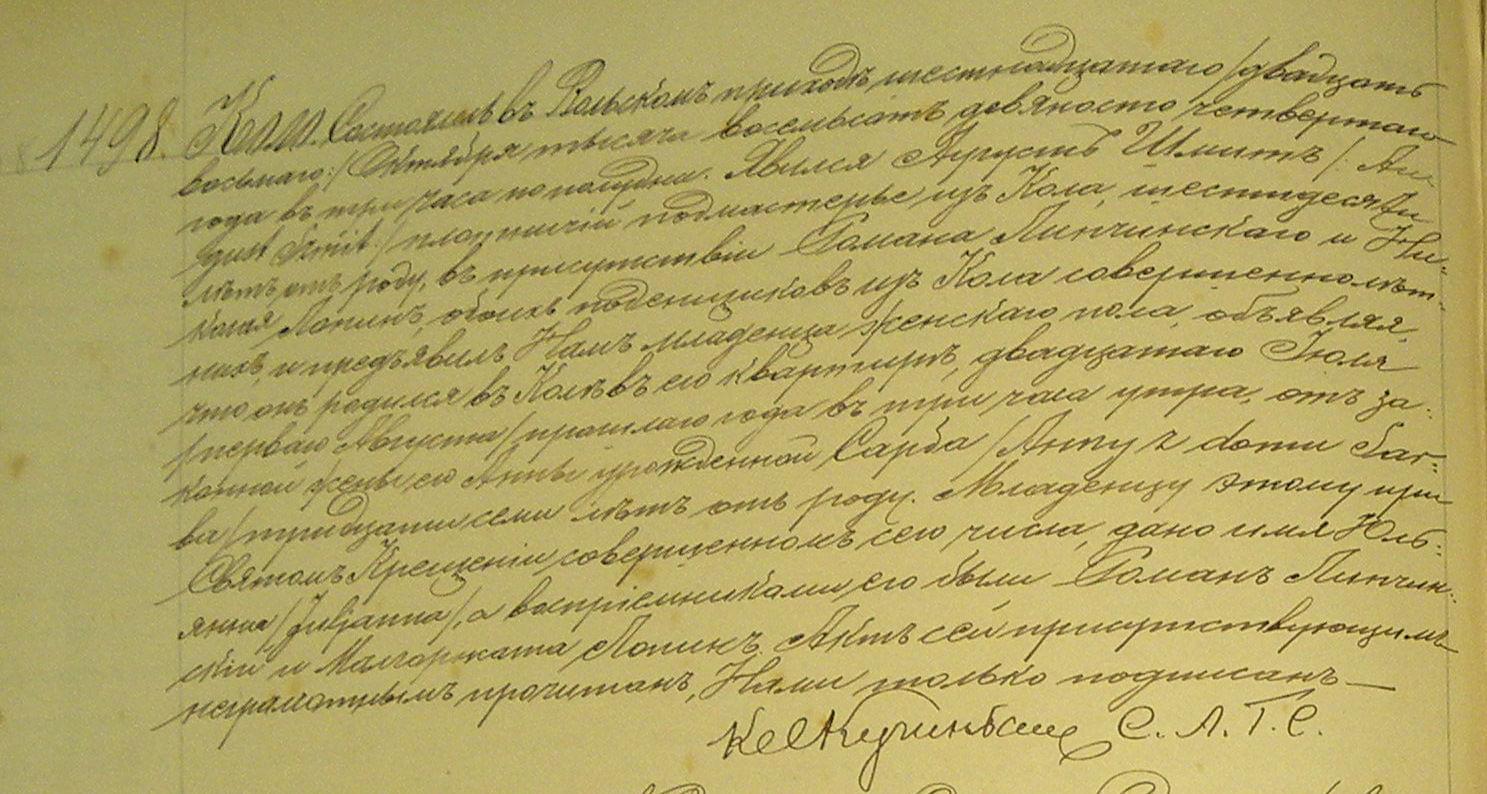 1498. Коло. Состоялось въ Кольскомъ приходѣ шестнадцатаго /двадцать
восьмаго:/ Октября тысяча восемьсотъ девяносто четвертаго
года въ три часа по полудни. Явился Августъ Шмитъ /: Au
gust Szmit:/ плотничій подмастерье изъ Кола, шестидесяти
лѣтъ отъ роду, въ присутствіи Романа Липчинскаго и Ни-
колая Лопинъ, обоихъ поденщиковъ изъ Кола совершеннолѣт-
нихъ, и предъявилъ Намъ младенца женскаго пола, объявляя,
что онъ родился въ Колѣ въ его квартирѣ, двадцатаго Іюля
/перваго Августа/ прошлаго года въ три часа утра, отъ за-
конной жены его Анны урожденной Сарба /Anny z domu Sar-
ba/ тридцати семи лѣтъ отъ роду. Младенцу этому при
Святомъ Крещеніи совершенномъ сего числа, дано имя Юль-
янна /Juljanna/, а воспріемниками его были Романъ Липчин-
скій и Малгоржата Лопинъ. Актъ сей присутствующимъ
неграмотнымъ прочитанъ, Нами только подписанъ —
С. А. Г. С.